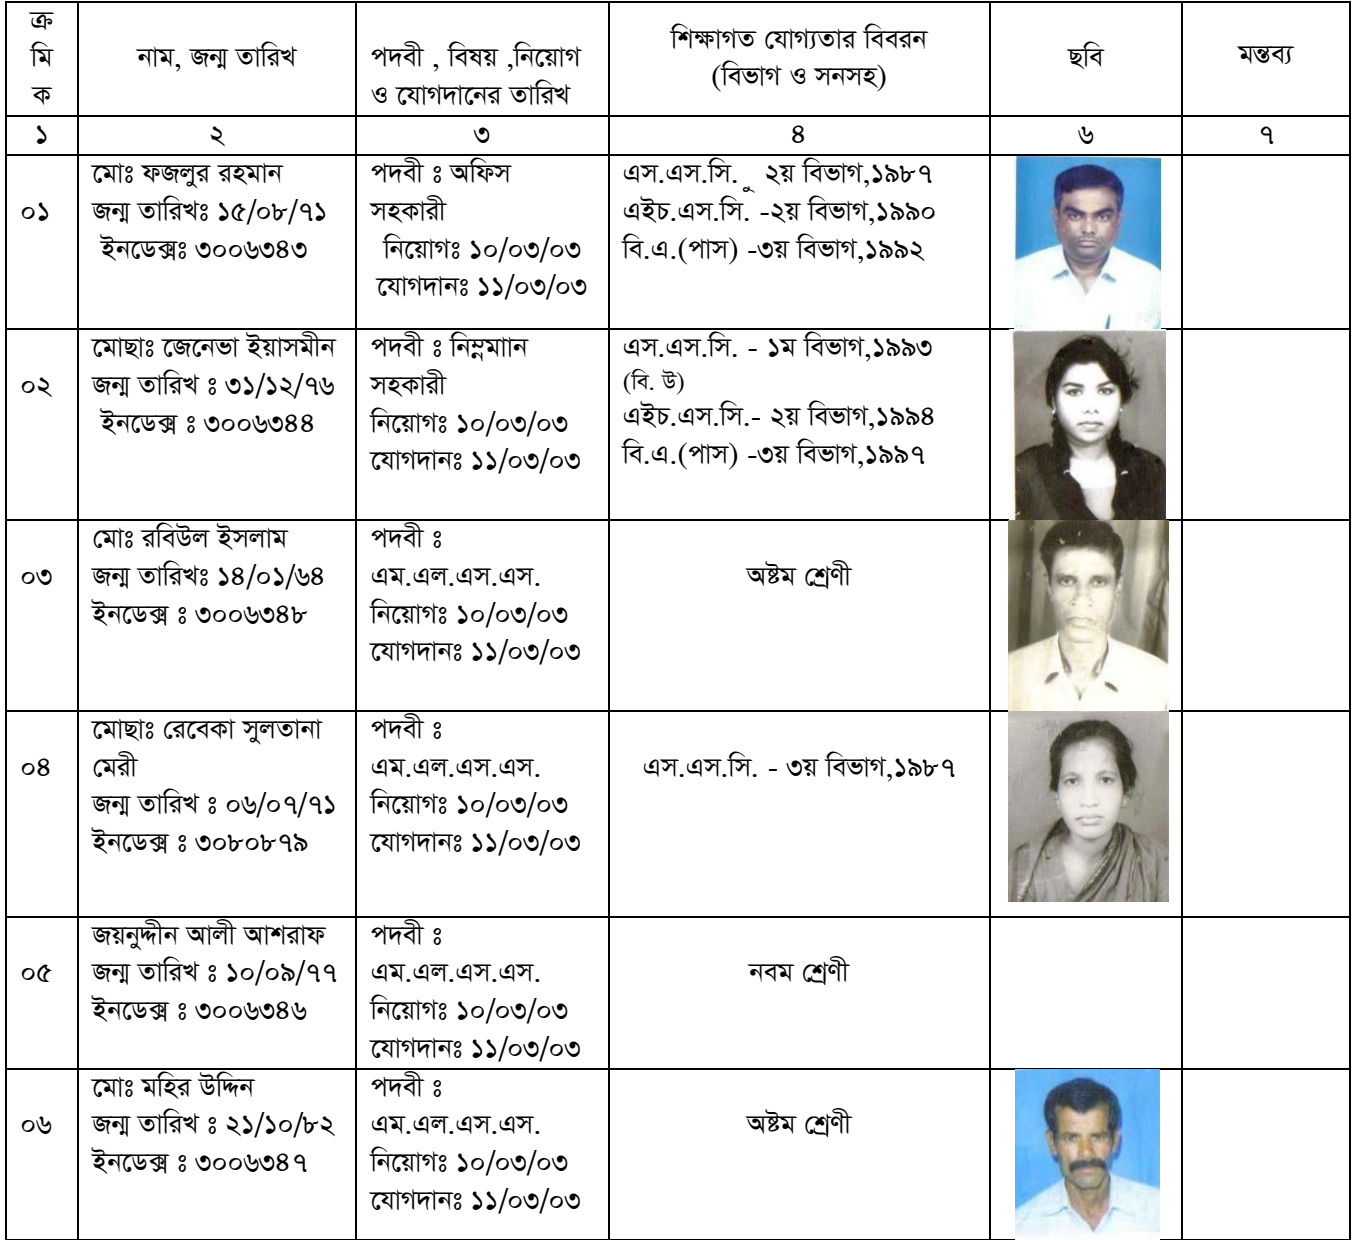 ক্রমিক
নাম, জন্ম তারিখ
পদবী , বিষয় ,নিয়োগ
ও যোগদানের তারিখ
শিক্ষাগত যোগ্যতার বিবরন
(বিভাগ ও সনসহ)
ছবি
মন্তব্য
১
২
৩
৪
৬
৭
০১
মোঃ ফজলুর রহমান
জন্ম তারিখঃ ১৫/০৮/৭১
ইনডেক্সঃ ৩০০৬৩৪৩
পদবী ঃ অফিস
সহকারী
নিয়োগঃ ১০/০৩/০৩
যোগদানঃ ১১/০৩/০৩
এস.এস.সি. ু ২য় বিভাগ,১৯৮৭
এইচ.এস.সি. -২য় বিভাগ,১৯৯০
বি.এ.(পাস) -৩য় বিভাগ,১৯৯২
০২
মোছাঃ জেনেভা ইয়াসমীন
জন্ম তারিখ ঃ ৩১/১২/৭৬
ইনডেক্স ঃ ৩০০৬৩৪৪
পদবী ঃ নিম্নমাান
সহকারী
নিয়োগঃ ১০/০৩/০৩
যোগদানঃ ১১/০৩/০৩
এস.এস.সি. - ১ম বিভাগ,১৯৯৩
(বি. উ)
এইচ.এস.সি.- ২য় বিভাগ,১৯৯৪
বি.এ.(পাস) -৩য় বিভাগ,১৯৯৭
০৩
মোঃ রবিউল ইসলাম
জন্ম তারিখঃ ১৪/০১/৬৪
ইনডেক্স ঃ ৩০০৬৩৪৮
পদবী ঃ
এম.এল.এস.এস.
নিয়োগঃ ১০/০৩/০৩
যোগদানঃ ১১/০৩/০৩
অষ্টম শ্রেণী
০৪
মোছাঃ রেবেকা সুলতানা
মেরী
জন্ম তারিখ ঃ ০৬/০৭/৭১
ইনডেক্স ঃ ৩০৮০৮৭৯
পদবী ঃ
এম.এল.এস.এস.
নিয়োগঃ ১০/০৩/০৩
যোগদানঃ ১১/০৩/০৩
এস.এস.সি. - ৩য় বিভাগ,১৯৮৭
০৫
জয়নুদ্দীন আলী আশরাফ
জন্ম তারিখ ঃ ১০/০৯/৭৭
ইনডেক্স ঃ ৩০০৬৩৪৬
পদবী ঃ
এম.এল.এস.এস.
নিয়োগঃ ১০/০৩/০৩
যোগদানঃ ১১/০৩/০৩
নবম শ্রেণী
০৬
মোঃ মহির উদ্দিন
জন্ম তারিখ ঃ ২১/১০/৮২
ইনডেক্স ঃ ৩০০৬৩৪৭
পদবী ঃ
এম.এল.এস.এস.
নিয়োগঃ ১০/০৩/০৩
যোগদানঃ ১১/০৩/০৩
অষ্টম শ্রেণী